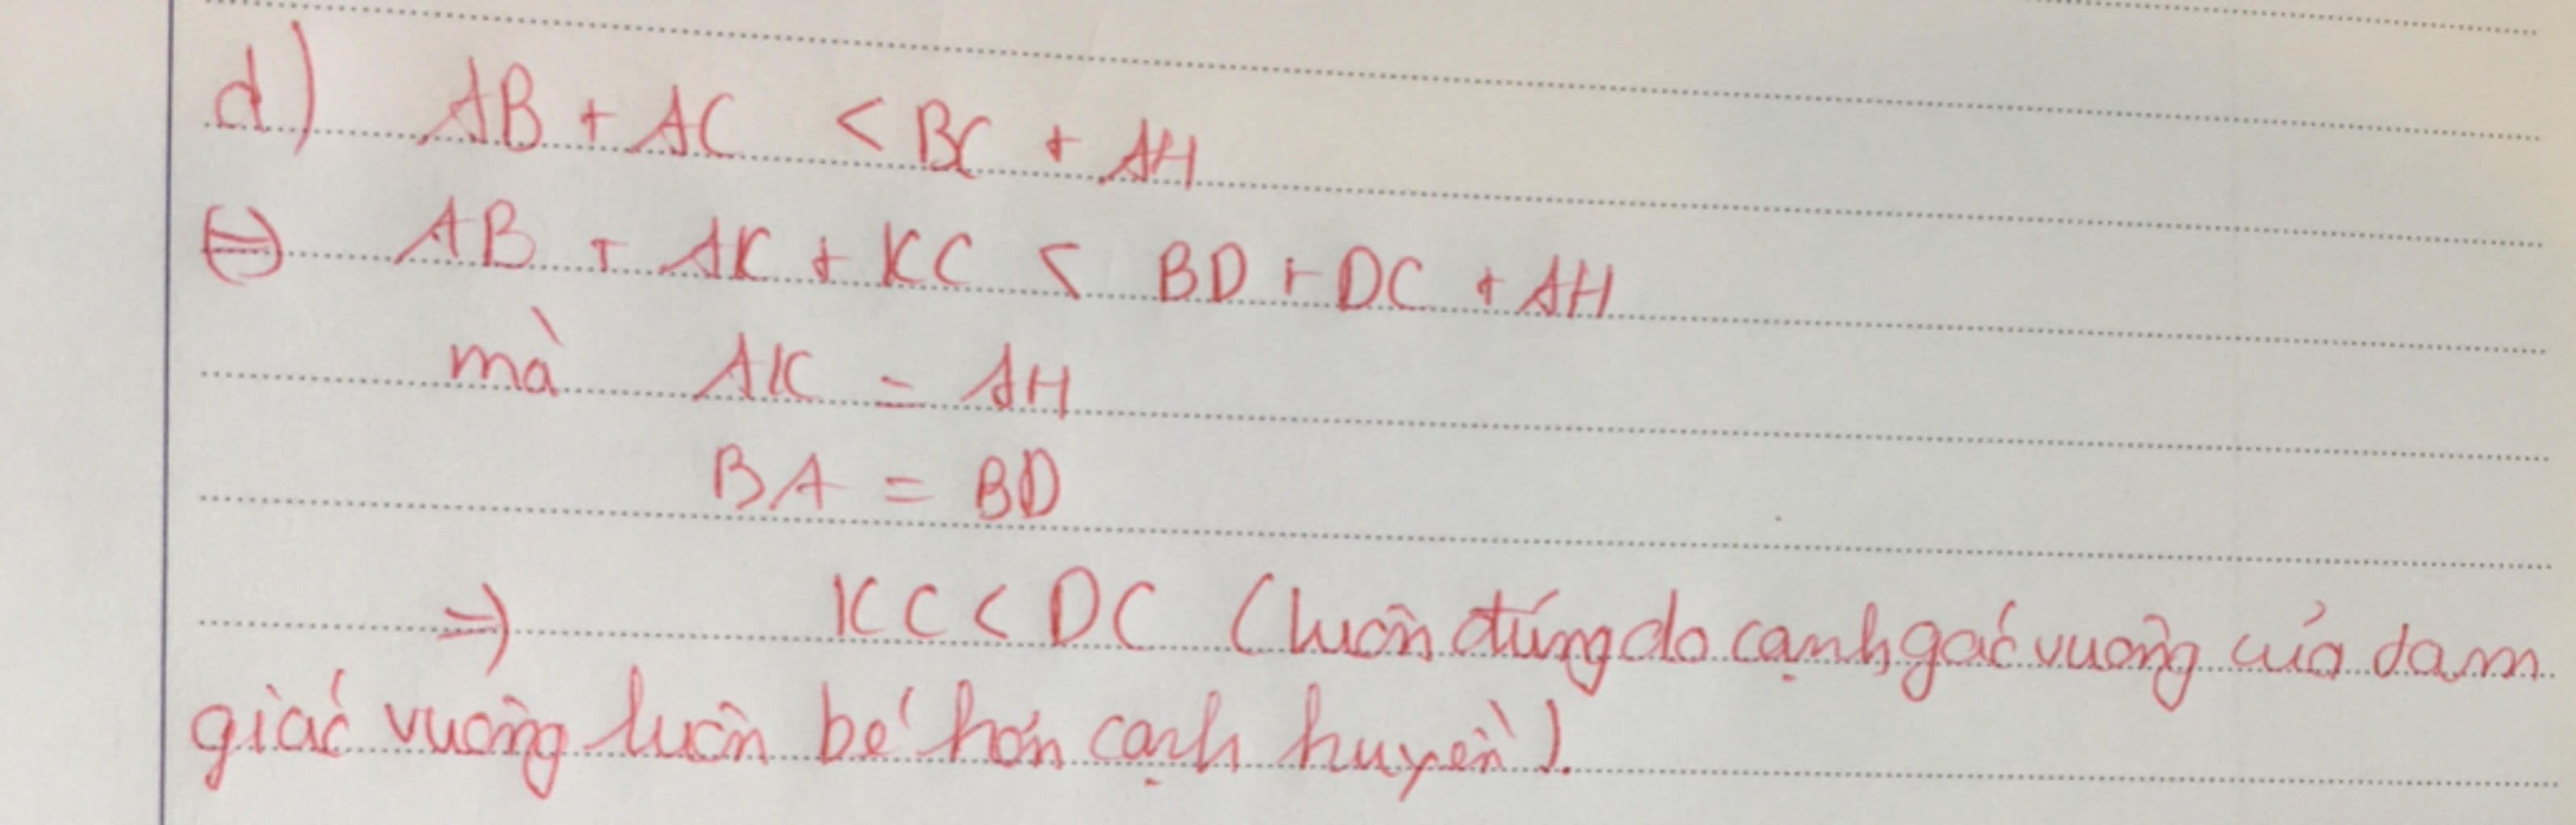 d) AB + AC < BC + AH
⇔ AB + AK + KC < BD + DC + AH
mà AK = AH
BA = BD
⇒ KC < DC (luôn đúng do cạnh góc vuông của dam
giác vuông luôn bé hơn cạnh huyền).